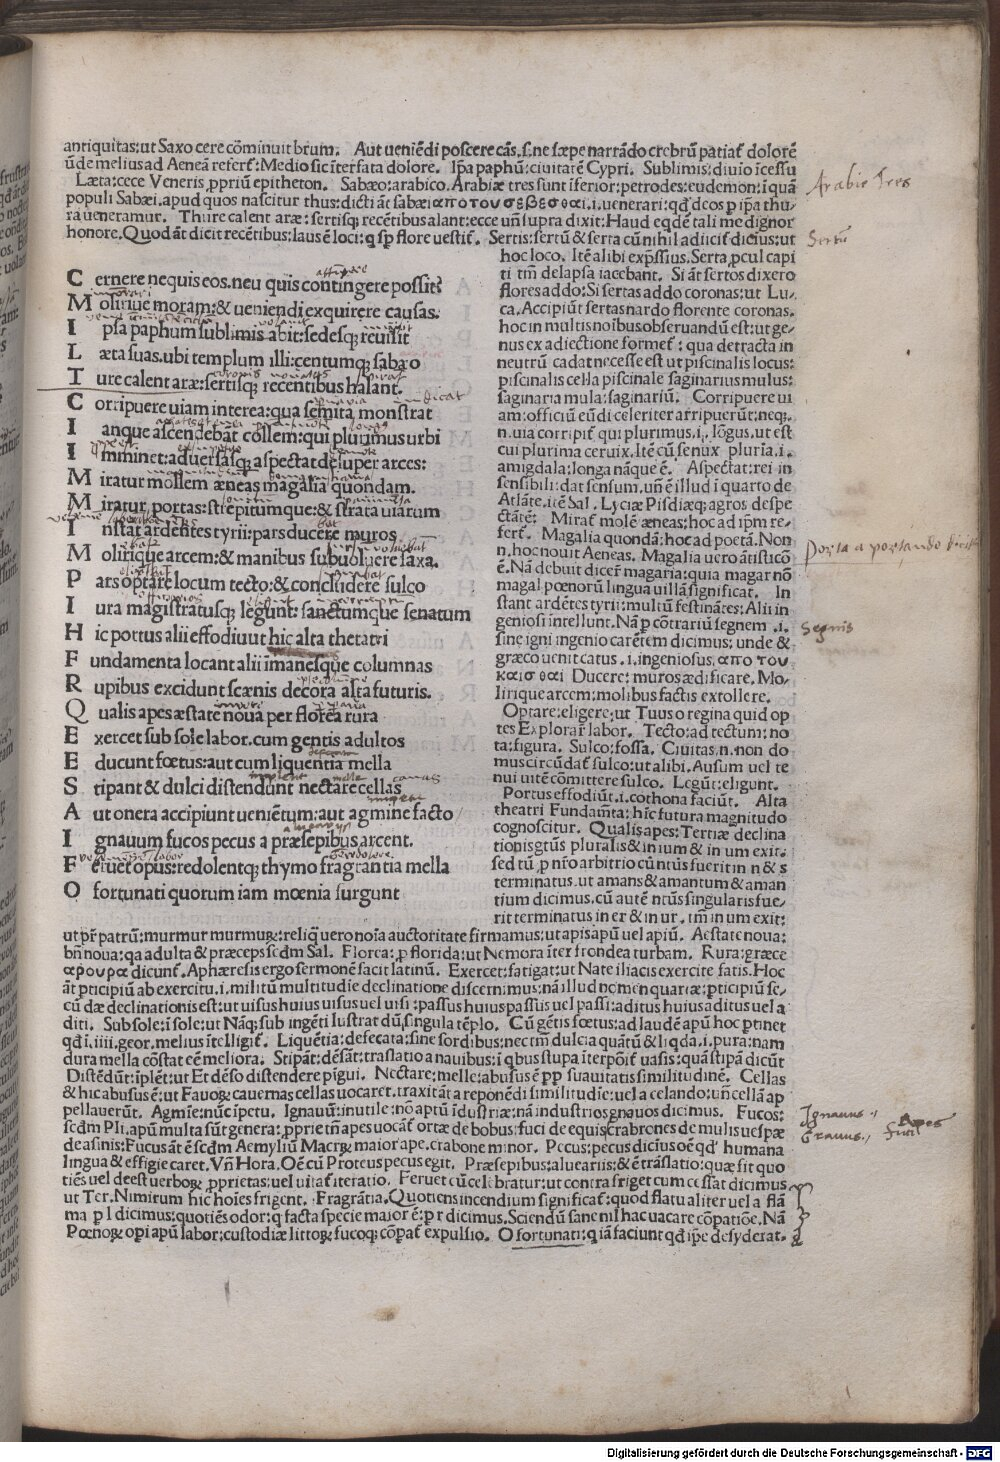 antiquitas:ut Saxo cere cōminuit brum. Aut ueniēdi poscere cās.s.ne sæpe narrādo crebrū patiat᷑ dolorē
ūde melius ad Aeneā refert᷑: Medio sic īterfata dolore. Ip̄a paphū: ciuitatē Cypri. Sublimis: diuīo īcessu
Læta: cece Veneris ,pprium epitheton. Sabæo: arabico. Arabiæ tres sunt īferior: petrodes: eudemon: ī qua
populi Sabæi. apud quos nascitur thus: dicti āt sabæi απο του σεβεσθαι .i. uenerari: qd̄ deos p ip̄a thu-
ra ueneramur. Thure calent aræ: sertisq; recētibus alant: ecce un̄ supra dixit: Haud eqdē tali me dignor
honore. Quod āt dicit recētibus: laus ē loci: q sp̄ flore uestit᷑. Sertis: sertū & serta cū nihil adiicit᷑ dicius: ut
hoc loco. Itē alibi exp̄ssius. Serta ,pcul capi
ti tm̄ delapsa iacebant. Si āt sertos dixero
flores addo: Si sertas addo coronas: ut Lu-
ca. Accipiūt sertas nardo florente coronas.
hoc in multis noībus obseruandū est: ut ge-
nus ex adiectione formet᷑: qua detracta in
neutrū cadat necesse est ut piscinalis locus:
piscinalis cella piscinale saginarius mulus:
saginaria mula: saginariū. Corripuere ui
am: officiū eūdi celeriter arripuerūt: neq;.
n. uia corripit᷑ qui plurimus .i. lōgus. ut est
cui plurima ceruix. Itē cū senux pluria .i.
amigdala: longa nāque ē. Aspectat: rei in
sensibili: dat sensum. un̄ ē illud ī quarto de
Atlāte. itē Sal. Lyciæ Pisdiæq; agros despe
ctātē: Mirat᷑ molē æneas: hoc ad ip̄m re-
fert᷑. Magalia quondā: hoc ad poetā. Non
n. hoc nouit Aeneas. Magalia uero ātisticō
ē. Nā debuit dicer̄ magaria: quia magar nō
magal pœnorū lingua uillā significat. In
stant ardētes tyrii: multū festinātes: Alii in
geniosi intellunt. Nā p cōtrariū segnem .i.
sine igni ingenio carētem dicimus: unde &
græco uenit catus .i. ingeniosus. απο του
καισθαι Ducere: muros ædificare. Mo-
lirique arcem: molibus factis extollere.
Optare: eligere: ut Tuus o regina quid op
tes Explorar̄ labor. Tecto: ad tectum: no
ta: figura. Sulco: fossa. Ciuitas.n.non do
mus circūdat᷑ sulco: ut alibi. Ausum uel te
nui uitē cōmittere sulco. Legūt: eligunt.
Portus effodiūt .i. cothona faciūt. Alta
theatri Fundam̄ta: hīc futura magnitudo
cognoscitur. Qualis apes: Tertiæ declina
tionis gtūs pluralis & in ium & in um exit.
sed tū p nr̄o arbitrio cū ntūs fuerit in n & s
terminatus. ut amans & amantum & aman
tium dicimus. cū autē ntūs singularis fue-
rit terminatus in er & in ur. tm̄ in um exit:
C ernere nequis eos. neu quis contingere possit?
M olirique moram: & ueniendi exquirere causas.
I psa paphum sublimis abit: sedesque reuisit
L æta suas. ubi templum illi: centumq; sabæo
T ure calent aræ: sertisq; recentibus halant.
C orripuere uiam interea: qua semita monstrat
I anque ascendebat collem: qui plurimus urbi
I mminet: aduersasq; aspectat desuper arces:
M iratur mollem æneas magalia quondam.
M iratur portas: strepitumque: & strata uiarum
I nstat ardentes tyrii: pars ducere muros
M olirique arcem: & manibus subuoluere saxa.
P ars optare locum tecto: & concludere sulco
I ura magistratusq; legunt: sanctumque senatum
H ic portus alii effodiuut hic alta thetatri
F undamenta locant alii imanesque columnas
R upibus excidunt scænis decora alta futuris.
Q ualis apes æstate noua per florea rura
E xercet sub sole labor. cum gentis adultos
E ducunt fœtus: aut cum liquentia mella
S tipant & dulci distendunt nectare cellas
A ut onera accipiunt ueniētum: aut agmine facto
I gnauum fucos pecus a præsepibus arcent.
F eruet opus: redolentq; thymo fragrantia mella
O fortunati quorum iam mœnia surgunt
ut pr̄ patrū: murmur murmuꝝ: reliq̄ uero noīa auctoritate firmamus: ut apis apū uel apiū. Aestate noua:
bn̄ noua: qa adulta & præceps secdm̄ Sal. Florea: p florida: ut Nemora īter frondea turbam. Rura: græce
αρουρα dicunt᷑. Aphæresis ergo sermonē facit latinū. Exercet: fatigat: ut Nate iliacis exercite fatis. Hoc
āt pticipiū ab exercitu .i. militū multitudīe declinatione discernimus: nā illud nomen quartæ: pticipiū se-
cū dæ declinationis est: ut uisus huius uisus uel uisi: passus huius passus uel passi: aditus huius aditus uel a
diti. Sub sole: ī sole: ut Nāq; sub ingēti lustrat dū singula tēplo. Cū gētis fœtus: ad laudē apū hoc ptinet
qd̄ ī. iiii. geor. melius ītelligit᷑. Liquētia: defecata: sine sordibus: nec tm̄ dulcia quātū & liqda .i. pura: nam
dura mella cōstat eē meliora. Stipāt: dēsāt: traslatio a nauibus: ī qbus stupa īterpōit᷑ uasis: quā stipā dicūt
Distēdūt: īplēt: ut Et dēso distendere pīgui. Nectare: melle: abusus ē pp suauitatis similitudinē. Cellas
& hic abusus ē: ut Fauoꝝ cauernas cellas uocaret. traxit āt a reponēdi similitudīe: uel a celando: un̄ cellā ap
pellauerūt. Agmīe: nūc īpetu. Ignauū: inutile: nō aptū īdustriæ: nā industrios gnauos dicimus. Fucos:
secdm̄ Pli. apū multa sūt genera: ,pprie tm̄ apes uocāt᷑ ortæ de bobus: fuci de equis: crabrones de mulis uespæ
de asinis: Fucus āt ē secdm̄ Aemyliū Macrꝝ maior ape. crabone minor. Pecus: pecus dicius oē qd̄ humana
lingua & effigie caret. Vn̄ Hora. Oē cū Proteus pecus egit. Præsepibus: aluearīis: & ē trāslatio: quæ fit quo
tiēs uel deest uerboꝝ ,pprietas: uel uitat᷑ iteratio. Feruet cū celebratur: ut contra friget cum cessat dicimus
ut Ter. Nimirum hic hoīes frigent. Fragrātia. Quotiens incendium significat᷑: quod flatu aliter uel a flā
ma p l dicimus: quotiēs odor: q facta specie maior ē: p r dicimus. Sciendū sane nil hac uacare cōpatiōe. Nā
Pœnoꝝ opi apū labor: custodiæ littoꝝ fucoq; cōpat᷑ expulsio. O fortunati: q iā faciunt qd̄ ip̄e desyderat.
Arabie tres
Sertū
porta a portando dicit
Segnis
Ignauus .i.
Gnauus .i.
Apes
fuci
Digitalisierung gefördert durch die Deutsche Forschungsgemeinschaft - DFG